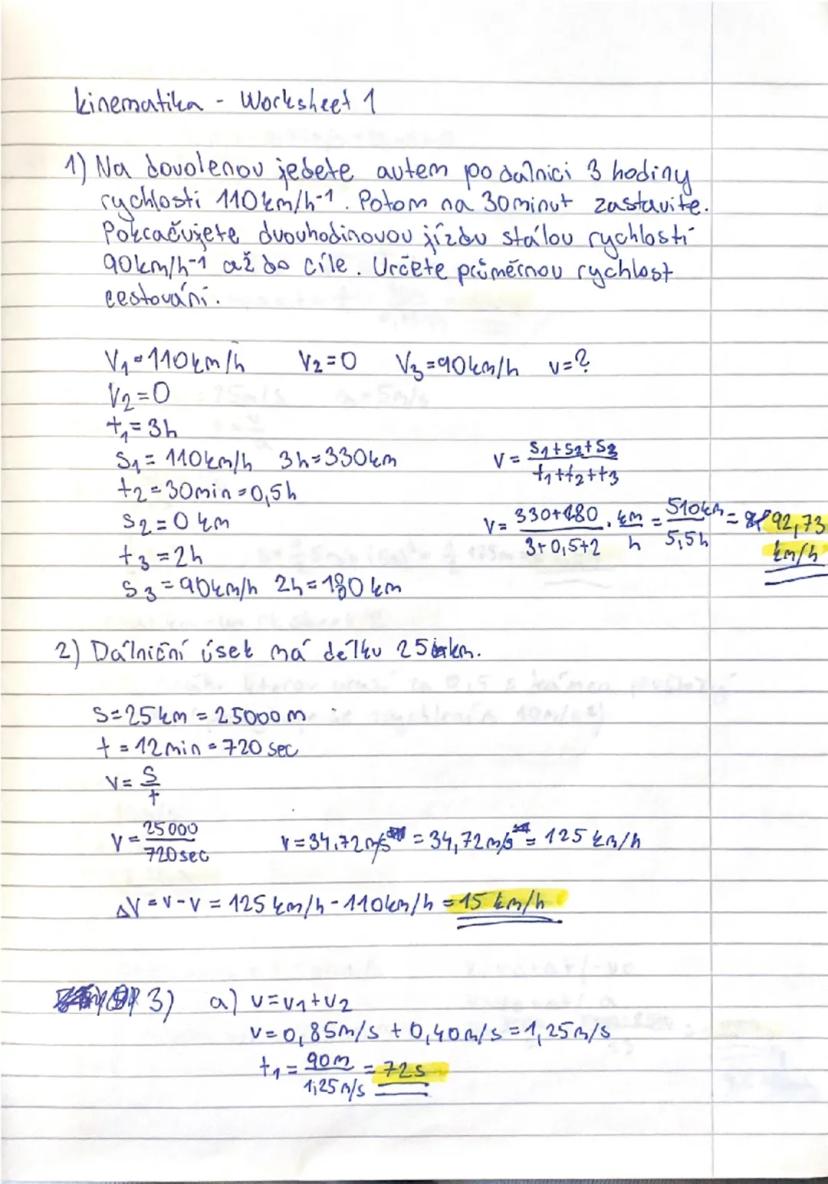 kinematika - Worksheet 1
1) Na dovolenou jedete autem po dalnici 3 hodiny
rychlostí 110km/h-1. Potom na 30minut zastavíte.
Pokračujete dvouhodinovou jízdu stálou rychlostí
90km/h-1 až do cíle. Určete průměrnou rychlost
cestování.
V1=110km/h V2=0 V3=90km/h v=?
V2=0
t1=3h
S1=110km/h 3h=330km
t2=30min=0,5h
S2=0km
t3=2h
S3=90km/h 2h=180km
v = (s1+s2+s3)/(t1+t2+t3)
v = (330+180)/(3+0,5+2) . km/h = 510km/5,5h = 92,73
km/h
2) Dálniční úsek má délku 25km.
S=25km=25000m
t=12min=720sec
v = S/t
v = 25000/720sec v=34,72m/s = 34,72m/s = 125km/h
ΔV=v-v=125km/h-110km/h=15km/h
3) a) v=v1+v2
v=0,85m/s+0,40m/s=1,25m/s
t1 = 90m/1,25m/s = 72s